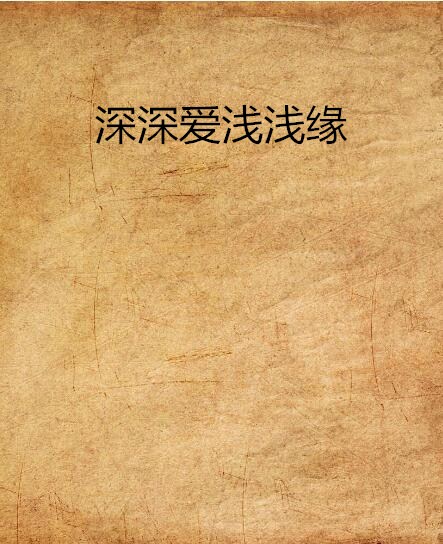 深深爱浅浅缘